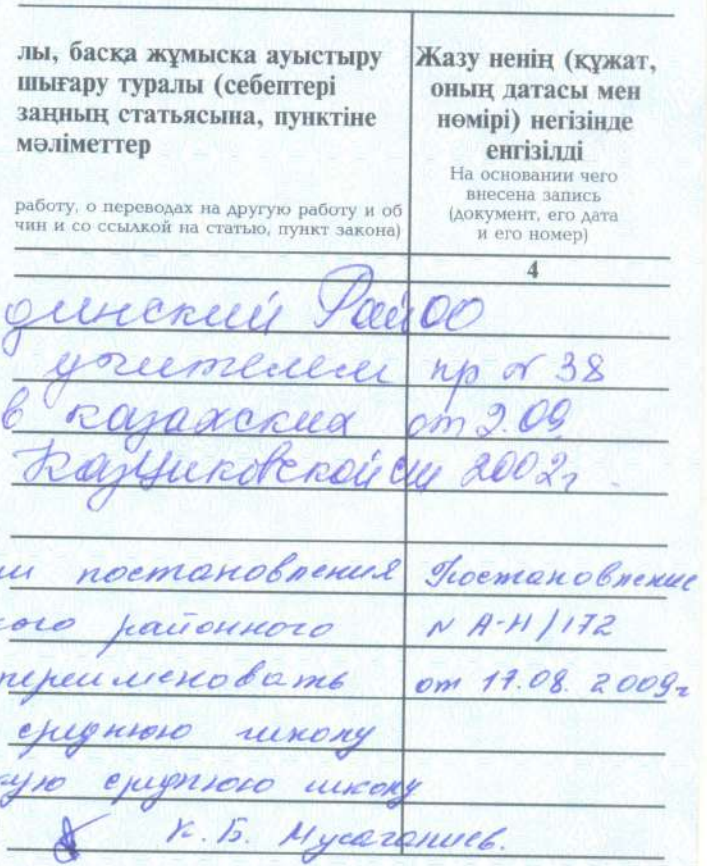 лы, басқа жұмыска ауыстыру
шығару туралы (себептері
заңның статьясына, пунктіне
мәліметтер
работу, о переводах на другую работу и об
чин и со ссылкой на статью, пункт закона)
Жазу ненің (құжат,
оның датасы мен
нөмірі) негізінде
енгізілді
На основании чего
внесена запись
(документ, его дата
и его номер)
4
динский РайОО
учителем пр № 38
в казахских от 2.09
сш 2002г.
и постановления Постановление
кого районного N А-Н/172
переименовать от 17.08.2009г
среднюю школу
кую среднюю школу
К.Б. Мусаганиев.